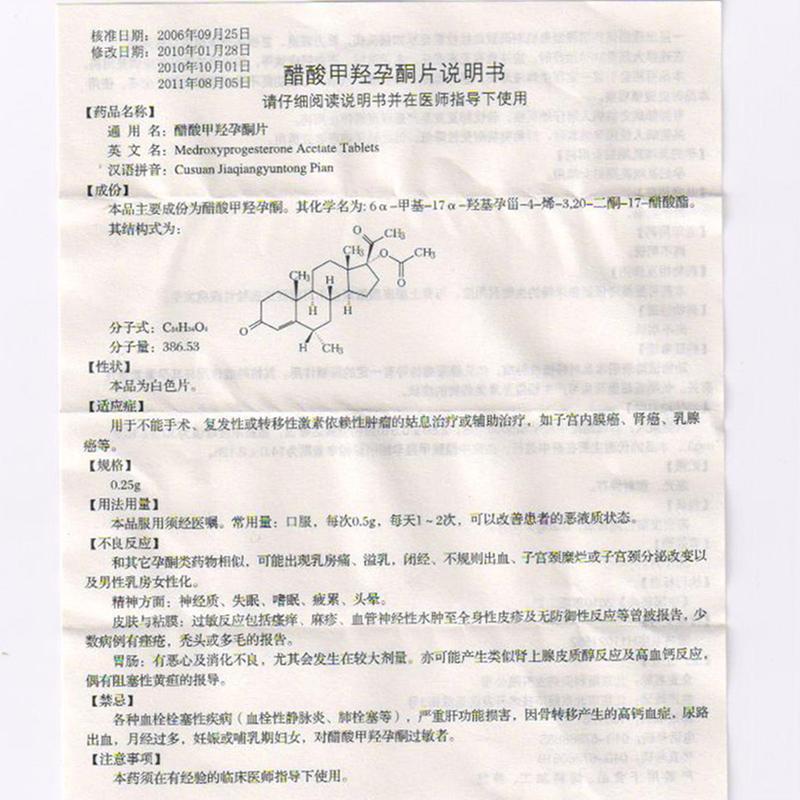 核准日期：2006年09月25日
修改日期：2010年01月28日
2010年10月01日
2011年08月05日
醋酸甲羟孕酮片说明书
请仔细阅读说明书并在医师指导下使用
【药品名称】
通 用 名：醋酸甲羟孕酮片
英 文 名：Medroxyprogesterone Acetate Tablets
汉语拼音：Cusuan Jiaqiangyuntong Pian
【成份】
本品主要成份为醋酸甲羟孕酮。其化学名为：6α-甲基-17α-羟基孕甾-4-烯-3,20-二酮-17-醋酸酯。
其结构式为：
CH₃
O
CH₃
O
CH₃
O
CH₃
H
H
H
O
H
CH₃
分子式：C₂₄H₃₄O₄
分子量：386.53
【性状】
本品为白色片。
【适应症】
用于不能手术、复发性或转移性激素依赖性肿瘤的姑息治疗或辅助治疗，如子宫内膜癌、肾癌、乳腺
癌等。
【规格】
0.25g
【用法用量】
本品服用须经医嘱。常用量：口服，每次0.5g，每天1~2次，可以改善患者的恶液质状态。
【不良反应】
和其它孕酮类药物相似，可能出现乳房痛、溢乳、闭经、不规则出血、子宫颈糜烂或子宫颈分泌改变以
及男性乳房女性化。
精神方面：神经质、失眠、嗜眠、疲累、头晕。
皮肤与粘膜：过敏反应包括瘙痒、麻疹、血管神经性水肿至全身性皮疹及无防御性反应等曾被报告，少
数病例有痤疮，秃头或多毛的报告。
胃肠：有恶心及消化不良，尤其会发生在较大剂量。亦可能产生类似肾上腺皮质醇反应及高血钙反应，
偶有阻塞性黄疸的报导。
【禁忌】
各种血栓栓塞性疾病（血栓性静脉炎、肺栓塞等），严重肝功能损害，因骨转移产生的高钙血症，尿路
出血，月经过多，妊娠或哺乳期妇女，对醋酸甲羟孕酮过敏者。
【注意事项】
本药须在有经验的临床医师指导下使用。